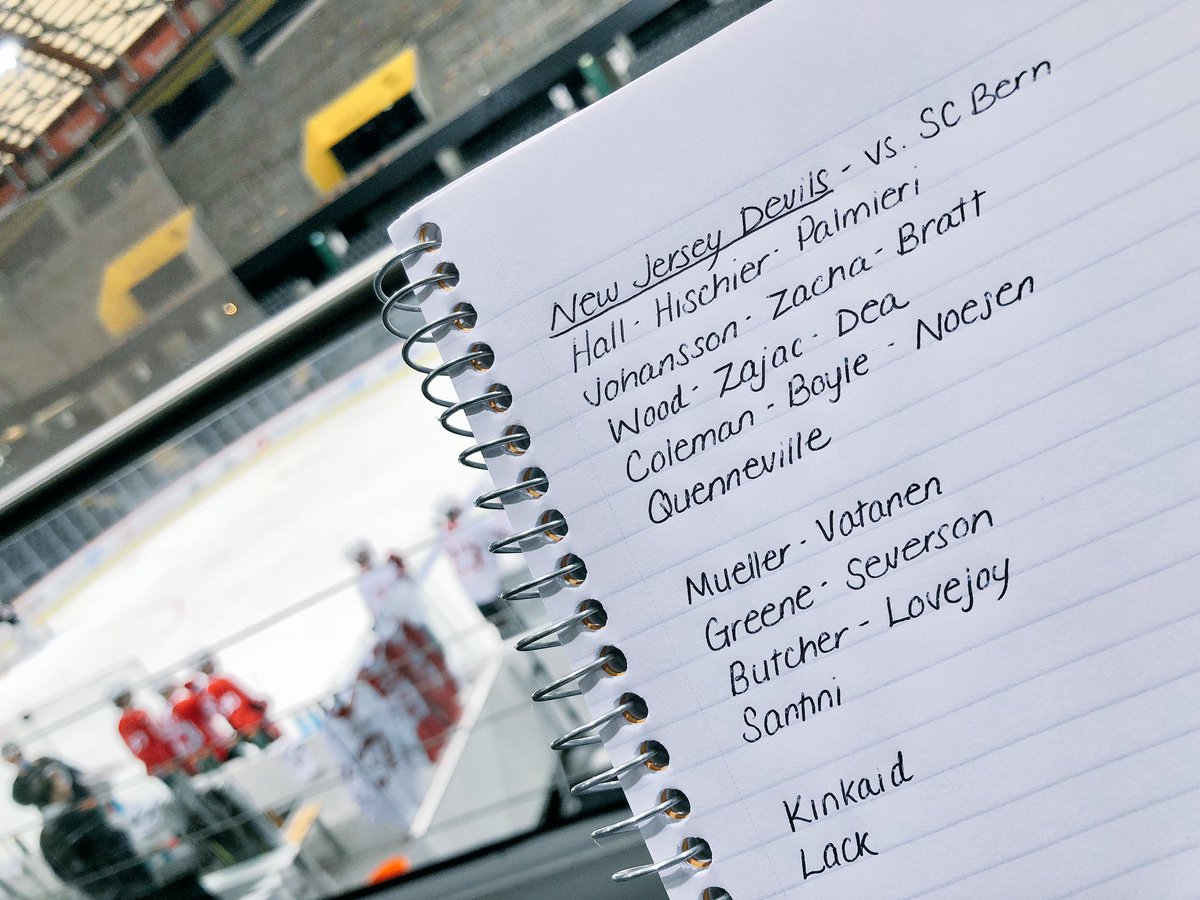 New Jersey Devils - vs. SC Bern
Hall - Hischier - Palmieri
Johansson - Zacha - Bratt
Wood - Zajac - Dea
Coleman - Boyle - Noesen
Quenneville
Mueller - Vatanen
Greene - Severson
Butcher - Lovejoy
Santini
Kinkaid
Lack